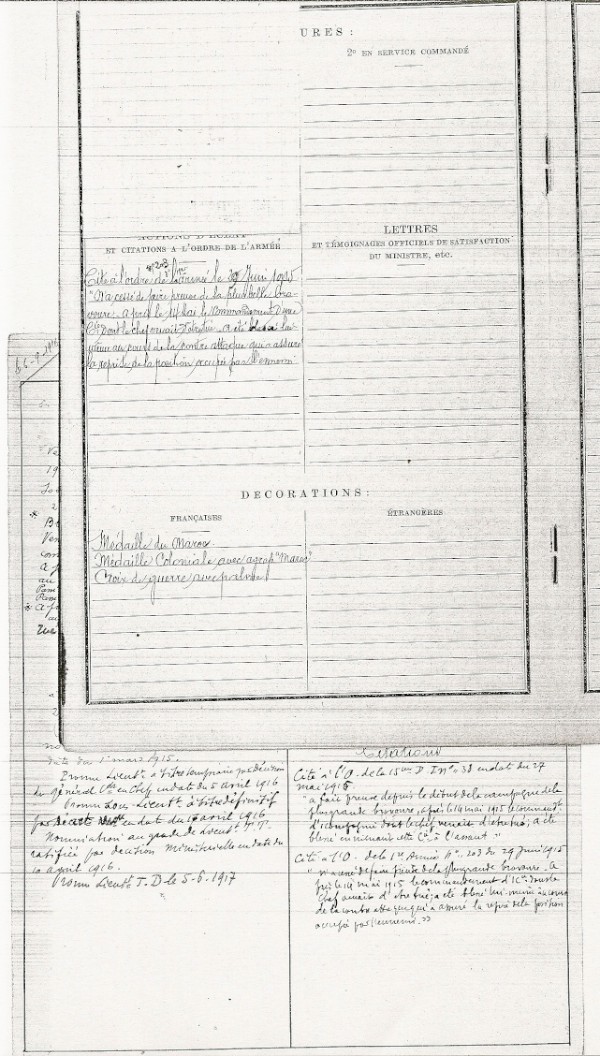 URES :
2° EN SERVICE COMMANDÉ
ACTIONS D'ÉCLAT
ET CITATIONS A L'ORDRE DE L'ARMÉE
LETTRES
ET TÉMOIGNAGES OFFICIELS DE SATISFACTION
DU MINISTRE, etc.
n° 203
Cité à l'ordre de l'armée le 29 Juin 1915
"N'a cessé de faire preuve de la plus belle bra
voure. a pris le 14 Mai le commandement d'une
Cie dont le chef venait d'être tué. a été blessé lui
même au cours de la contre attaque qui a assuré
la reprise de la position occupée par l'ennemi
DECORATIONS :
FRANÇAISES
ÉTRANGÈRES
Médaille du Maroc
Médaille Coloniale avec agrafe "Maroc"
Croix de guerre avec palme
date du 1er mars 1915.
Promu Lieut. à titre temporaire par Décision
du général Ct en Chef en date du 5 avril 1916
Promu Sous-Lieut. à titre définitif
par décret en date du 10 avril 1916.
Nomination au grade de Lieut. T.T.
ratifiée par décision Ministérielle en date du
10 avril 1916.
Promu Lieut. T.D. le 5-6.1917
Citations
Cité à l'O. de la 15ème D.I. n° 38 en date du 27
mai 1915
"a fait preuve depuis le début de la campagne de la
plus grande bravoure, a pris le 14 mai 1915 le commandt
d'1 compagnie dont le chef venait d'être tué; a été
blessé en menant cette Cie à l'assaut."
Cité à l'O. de la 1re Armée n° 203 du 29 Juin 1915
faire preuve de la plus grande bravoure. A
pris le 14 mai 1915 le commandement d'1 Cie dont le
chef venait d'être tué; a été blessé lui-même au cours
de la contre attaque qui a assuré la reprise de la position
occupée par l'ennemi."